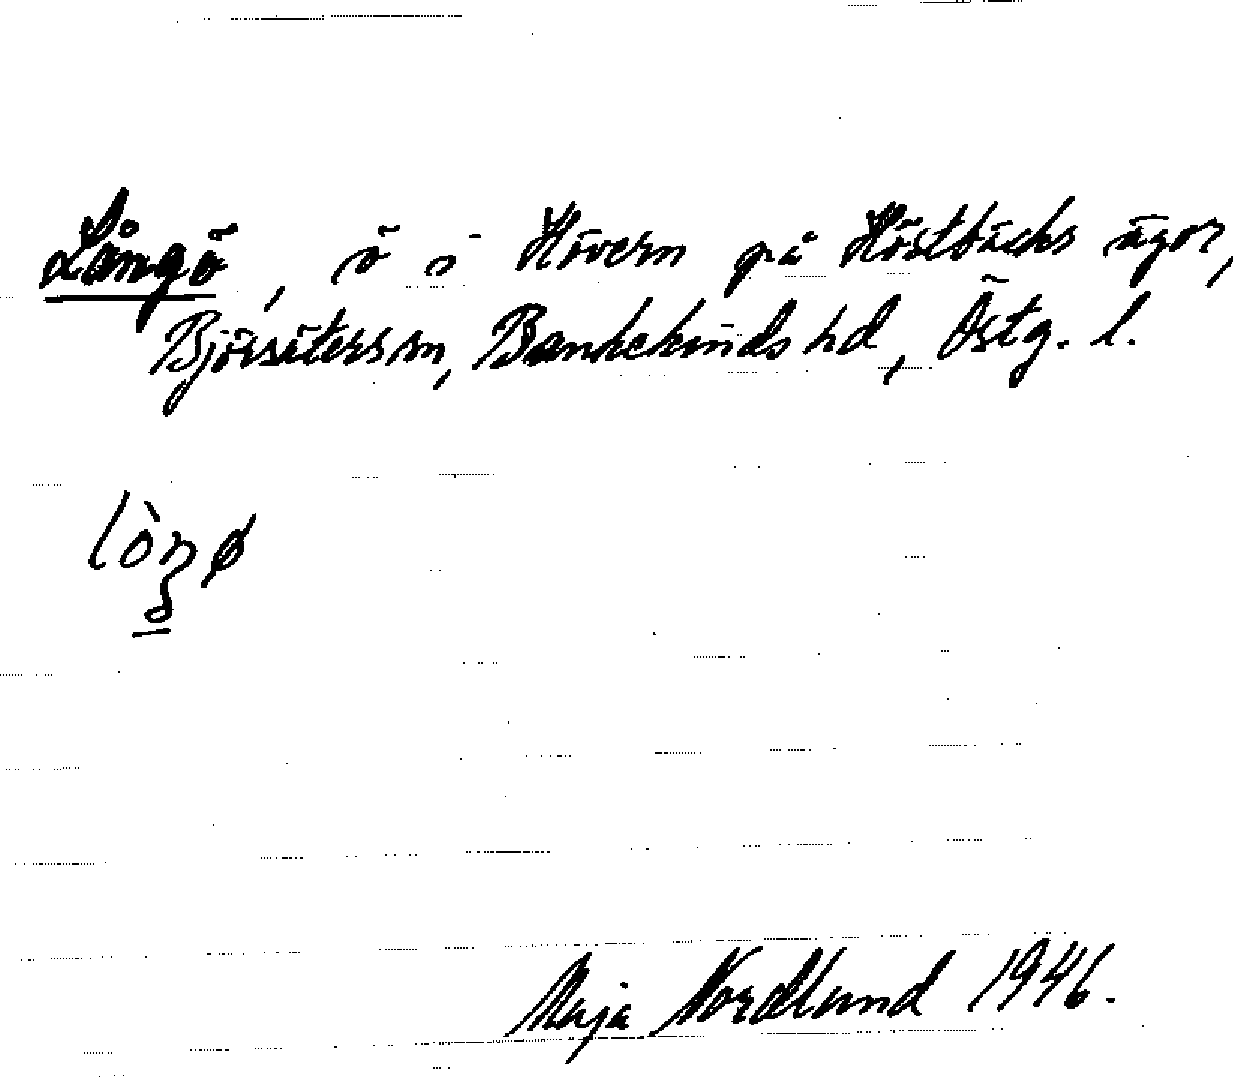 Långö, ö i Hövern på Höstbäcks ägor,
Björsäters sn, Bankekinds hd, Östg. l.
lòŋø
Maja Nordlund 1946.